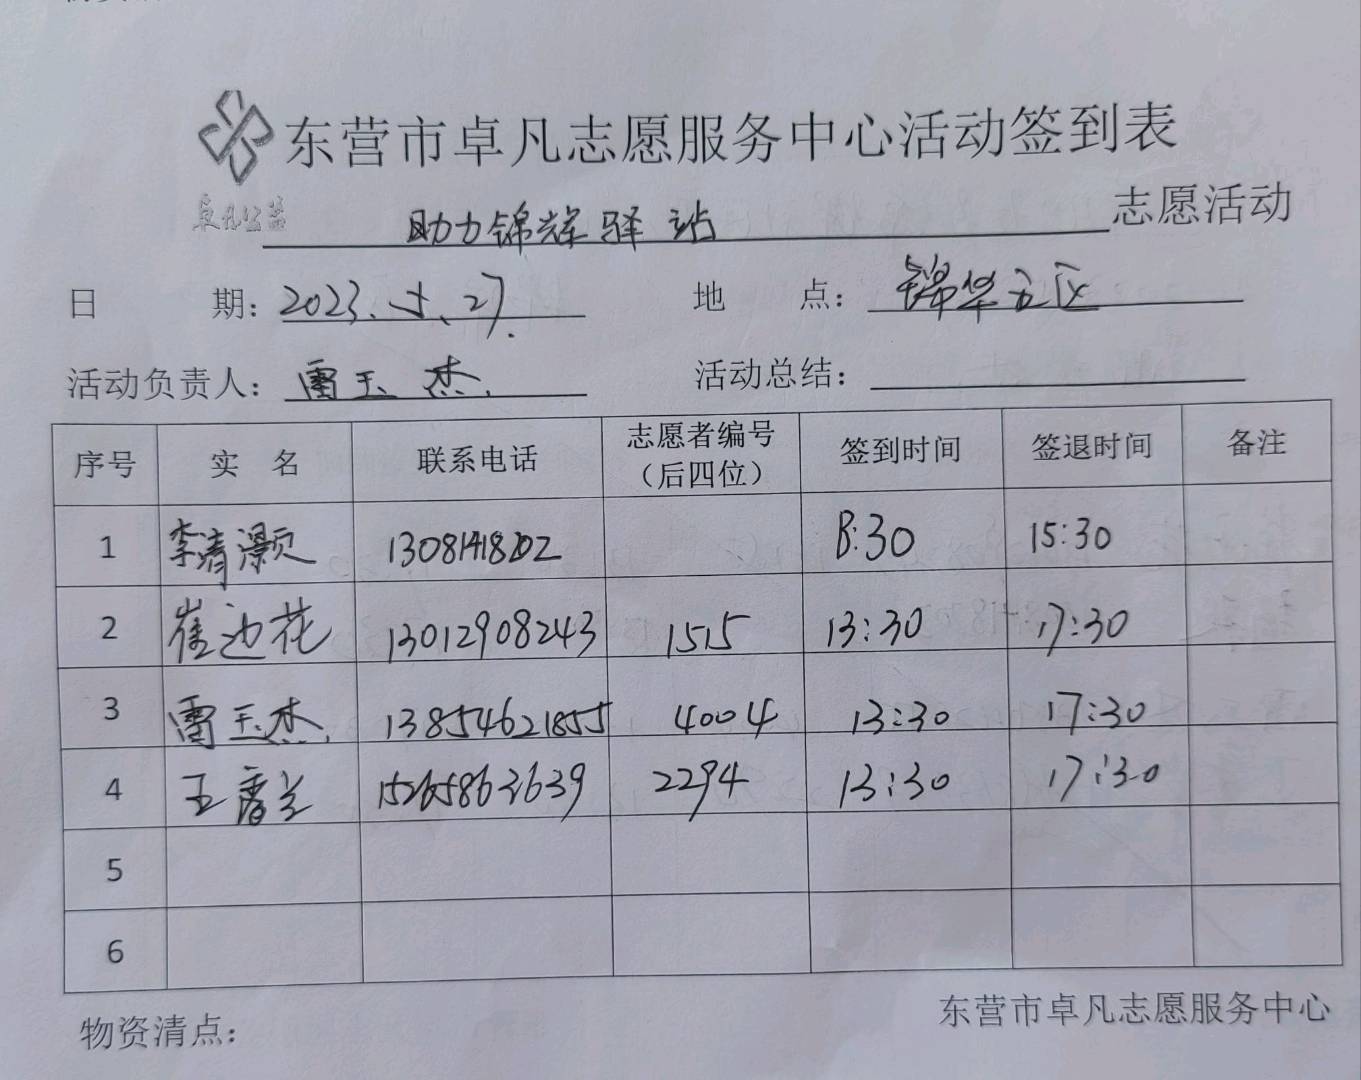 东营市卓凡志愿服务中心活动签到表
卓凡公益
助力锦辉驿站 志愿活动
日 期：2023.5.27. 地 点：锦华五区
活动负责人：雷玉杰. 活动总结：
序号 实 名 联系电话 志愿者编号（后四位） 签到时间 签退时间 备注
1 李清灏 :30 15:30
2 崔边花 13012908243 1515 13:30 17:30
3 雷玉杰. 13854621855 4004 13:30 17:30
4 王春兰 15265863639 2294 13:30 17:30
5
6
物资清点： 东营市卓凡志愿服务中心